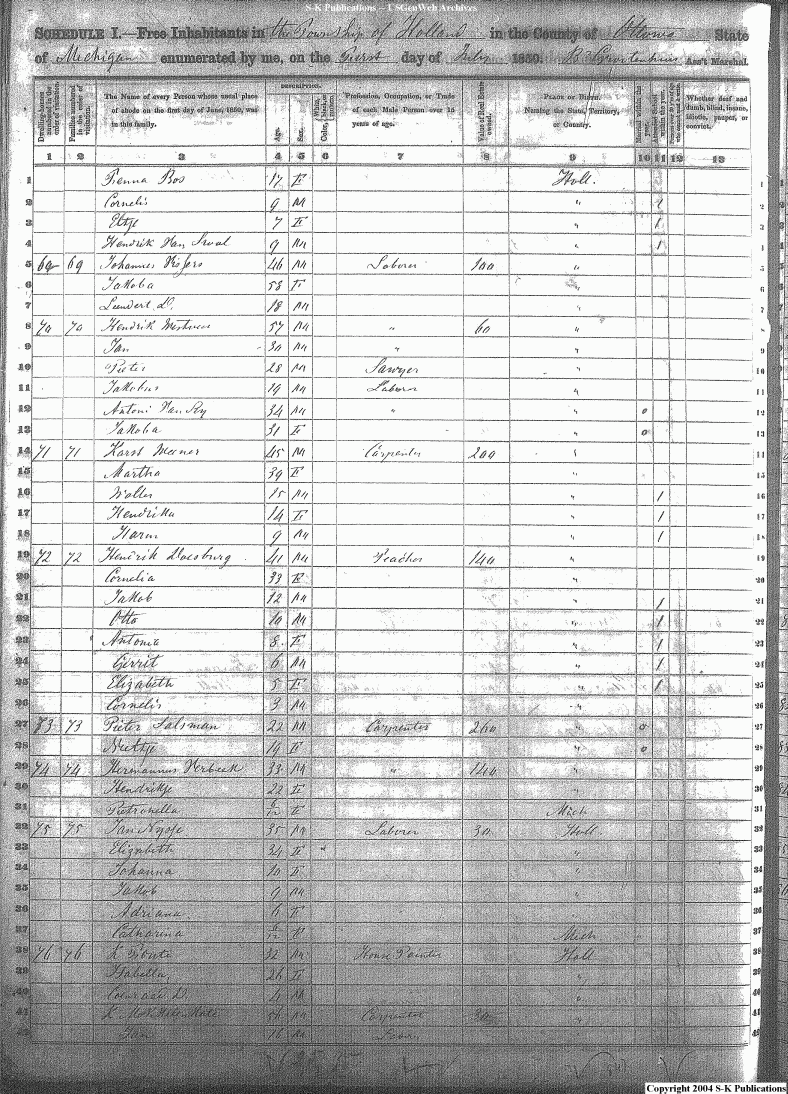 S-K Publications -- USGenWeb Archives
SCHEDULE I.—Free Inhabitants in the Township of Holland in the County of Ottowa State
of Michigan enumerated by me, on the First day of July 1850. Ass't Marshal.
DESCRIPTION.
Dwelling-houses numbered in the order of visitation. Families numbered in the order of visitation. The Name of every Person whose usual place of abode on the first day of June, 1850, was in this family. Age. Sex. Color, White, black, or mulatto. Profession, Occupation, or Trade of each Male Person over 15 years of age. Value of Real Estate owned. PLACE OF BIRTH. Naming the State, Territory, or Country. Married within the year. Attended School within the year. Whether deaf and dumb, blind, insane, idiotic, pauper, or convict.
1 2 3 4 5 6 7 8 9 10 11 12 13
1 Bos 17 F Holl. 1
2 Cornelis 9 M " 1 2
3 Eltje 7 F " 1 3
4 Hendrik Van 9 M " 1 4
5 69 69 Johannes Vissers 46 M Laborer 100 " 5
6 Jakoba 53 F " 6
7 Leendert D. 18 M " 7
8 70 70 Hendrik 57 M " 60 " 8
9 Jan 30 M " " 9
10 Pieter 28 M Sawyer " 10
11 Jakobus 19 M Laborer " 11
12 Antoni Van 34 M " " 0 12
13 Jakoba 31 F " 0 13
14 71 71 Karst 45 M Carpenter 200 " 14
15 Martha 39 F " 15
16 Wolter 15 M " 1 16
17 Hendrika 14 F " 1 17
18 Harm 9 M " 1 18
19 72 72 Hendrik Doesburg 41 M Teacher 140 " 19
20 Cornelia 33 F " 20
21 Jakob 12 M " 1 21
22 Otto 10 M " 1 22
23 Antonia 8 F " 1 23
24 Gerrit 6 M " 1 24
25 Elizabeth 5 F " 1 25
26 Cornelis 3 M " 26
27 73 73 Pieter Salsman 22 M Carpenter 260 " 0 27
28 Neeltje 19 F " 0 28
29 74 74 Hermannus Verbeek 33 M " 140 " 29
30 Hendrikje 22 F " 30
31 Pietronella F Mich 31
32 75 75 Jan Nysse 35 M Laborer 30 Holl 32
33 Elizabeth 34 F " " 33
34 Johanna 10 F " 34
35 Jakob 9 M " 35
36 Adriana 6 F " 36
37 Catharina F Mich 37
38 76 76 K 32 M House Painter Holl 38
39 Isabella 26 F " 39
40 D. 4 M " 40
41 Carpenter " 41
42 Jan 16 M " 42
Copyright 2004 S-K Publications